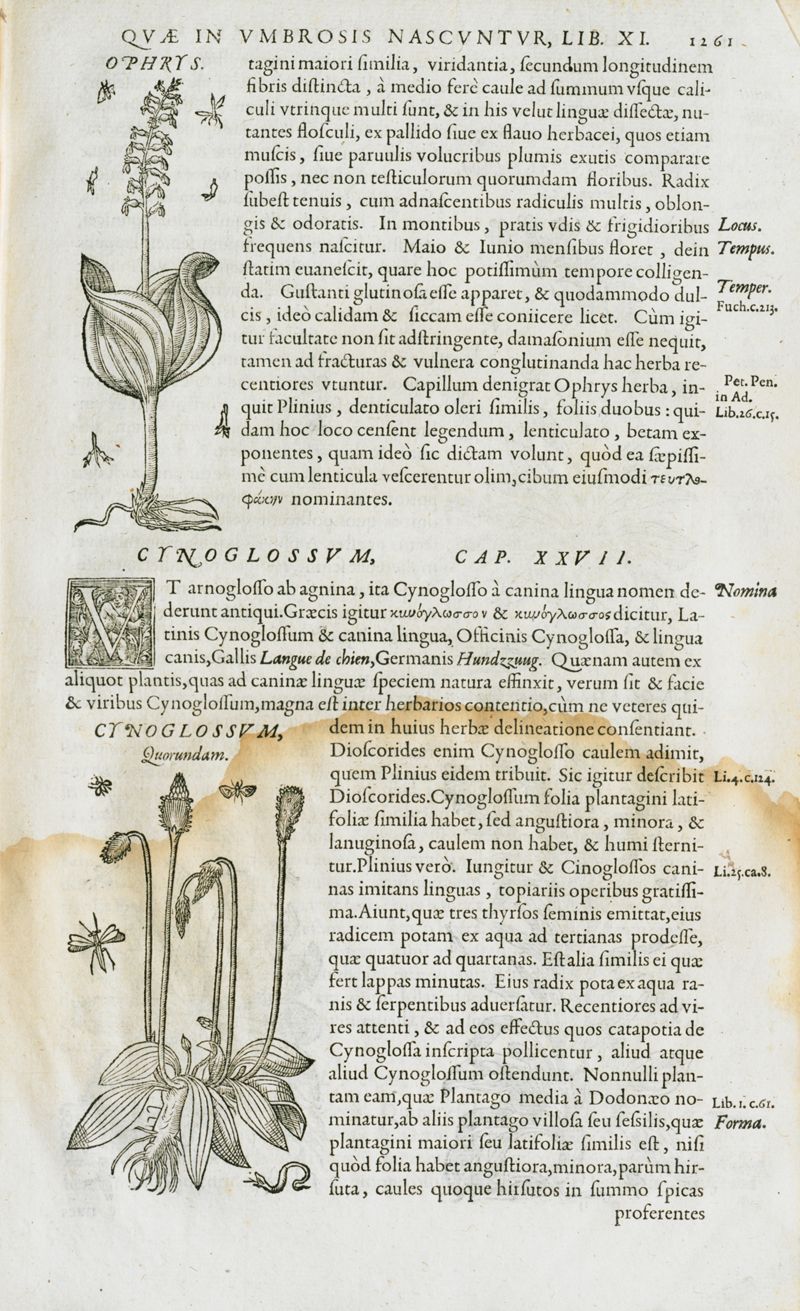 QVÆ IN VMBROSIS NASCVNTVR, LIB. XI. 1261
OPHRYS.
tagini maiori ſimilia, viridantia, ſecundum longitudinem
fibris diſtincta, à medio ferè caule ad ſummum vſque cali-
culi vtrinque multi ſunt, & in his velut linguæ diſſectæ, nu-
tantes floſculi, ex pallido ſiue ex flauo herbacei, quos etiam
muſcis, ſiue paruulis volucribus plumis exutis comparare
poſſis, nec non teſticulorum quorumdam floribus. Radix
ſubeſt tenuis, cum adnaſcentibus radiculis multis, oblon-
gis & odoratis. In montibus, pratis vdis & frigidioribus Locus.
frequens naſcitur. Maio & Iunio menſibus floret, dein Tempus.
ſtatim euaneſcit, quare hoc potiſſimùm tempore colligen-
da. Guſtanti glutinoſa eſſe apparet, & quodammodo dul- Temper.
cis, ideò calidam & ſiccam eſſe coniicere licet. Cùm igi- Fuch.c.213.
tur facultate non ſit adſtringente, damaſonium eſſe nequit,
tamen ad fracturas & vulnera conglutinanda hac herba re-
centiores vtuntur. Capillum denigrat Ophrys herba, in- Pet. Pen.
in Ad.
quit Plinius, denticulato oleri ſimilis, foliis duobus: qui- Lib.26.c.15.
dam hoc loco cenſent legendum, lenticulato, betam ex-
ponentes, quam ideò ſic dictam volunt, quòd ea ſæpiſſi-
mè cum lenticula veſcerentur olim, cibum eiuſmodi τευτλο-
φάκην nominantes.
CYNOGLOSSVM, CAP. XXVII.
VT arnogloſſo ab agnina, ita Cynogloſſo à canina lingua nomen de- Nomina
derunt antiqui. Græcis igitur κυνόγλωσσον & κυνόγλωσσος dicitur, La-
tinis Cynogloſſum & canina lingua, Officinis Cynogloſſa, & lingua
canis, Gallis Langue de chien, Germanis Hundzzuug. Quænam autem ex
aliquot plantis, quas ad caninæ linguæ ſpeciem natura effinxit, verum ſit & facie
& viribus Cynogloſſum, magna eſt inter herbarios contentio, cùm ne veteres qui-
CYNOGLOSSVM,
Quorundam.
dem in huius herbæ delineatione conſentiant.
Dioſcorides enim Cynogloſſo caulem adimit,
quem Plinius eidem tribuit. Sic igitur deſcribit Li.4.c.124.
Dioſcorides. Cynogloſſum folia plantagini lati-
foliæ ſimilia habet, ſed anguſtiora, minora, &
lanuginoſa, caulem non habet, & humi ſterni-
tur. Plinius verò. Iungitur & Cinogloſſos cani- Li.25.ca.8.
nas imitans linguas, topiariis operibus gratiſſi-
ma. Aiunt, quæ tres thyrſos ſeminis emittat, eius
radicem potam ex aqua ad tertianas prodeſſe,
quæ quatuor ad quartanas. Eſt alia ſimilis ei quæ
fert lappas minutas. Eius radix pota ex aqua ra-
nis & ſerpentibus aduerſatur. Recentiores ad vi-
res attenti, & ad eos effectus quos catapotia de
Cynogloſſa inſcripta pollicentur, aliud atque
aliud Cynogloſſum oſtendunt. Nonnulli plan-
tam eam, quæ Plantago media à Dodonæo no- Lib. 1. c.61.
minatur, ab aliis plantago villoſa ſeu ſeſsilis, quæ Forma.
plantagini maiori ſeu latifoliæ ſimilis eſt, niſi
quòd folia habet anguſtiora, minora, parùm hir-
ſuta, caules quoque hirſutos in ſummo ſpicas
proferentes